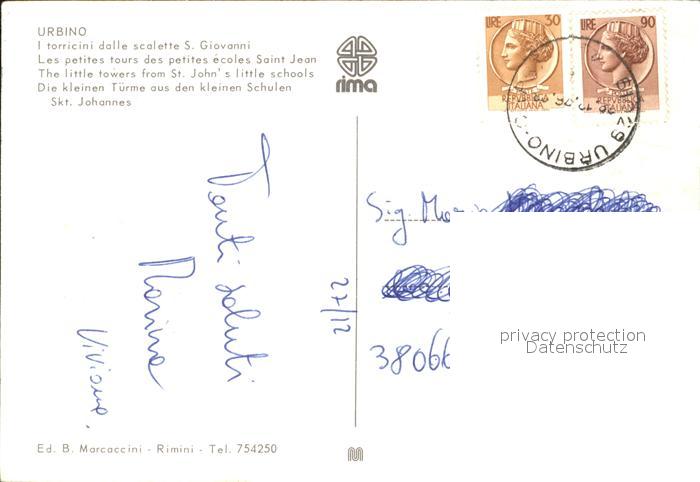 URBINO
I torricini dalle scalette S. Giovanni
Les petites tours des petites écoles Saint Jean
The little towers from St. John's little schools
Die kleinen Türme aus den kleinen Schulen
Skt. Johannes
rima
LIRE 30
REPVBBLICA
ITALIANA
LIRE 90
REPVBBLICA
ITALIANA
URBINO
Tanti saluti
Marina
Viviana.
Sig.
38066
privacy protection
Datenschutz
Ed. B. Marcaccini - Rimini - Tel. 754250